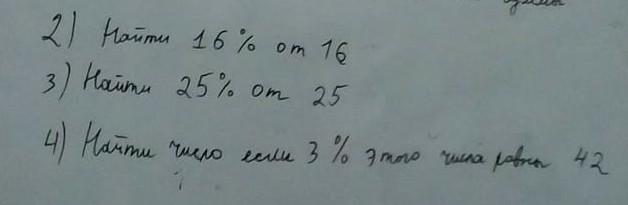 2) Найти 16% от 16
3) Найти 25% от 25
4) Найти число если 3% этого числа равны 42